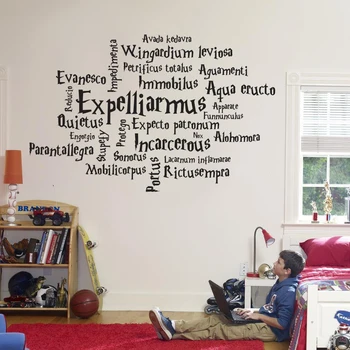 Avada kedavra
Wingardium leviosa
Impedimenta
Petrificus totalus
Evanesco
Aguamenti
Immobilus
Reducio
Aqua eructo
Expelliarmus
Apparate
Funnunculus
Quietus
Protego
Expecto patronum
Engorgio
Stupefy
Nox
Alohomora
Incarcerous
Parantallegra
Sonorus
Lacarnum inflamarae
Mobilicorpus
Portus
Rictusempra
BRANDEN